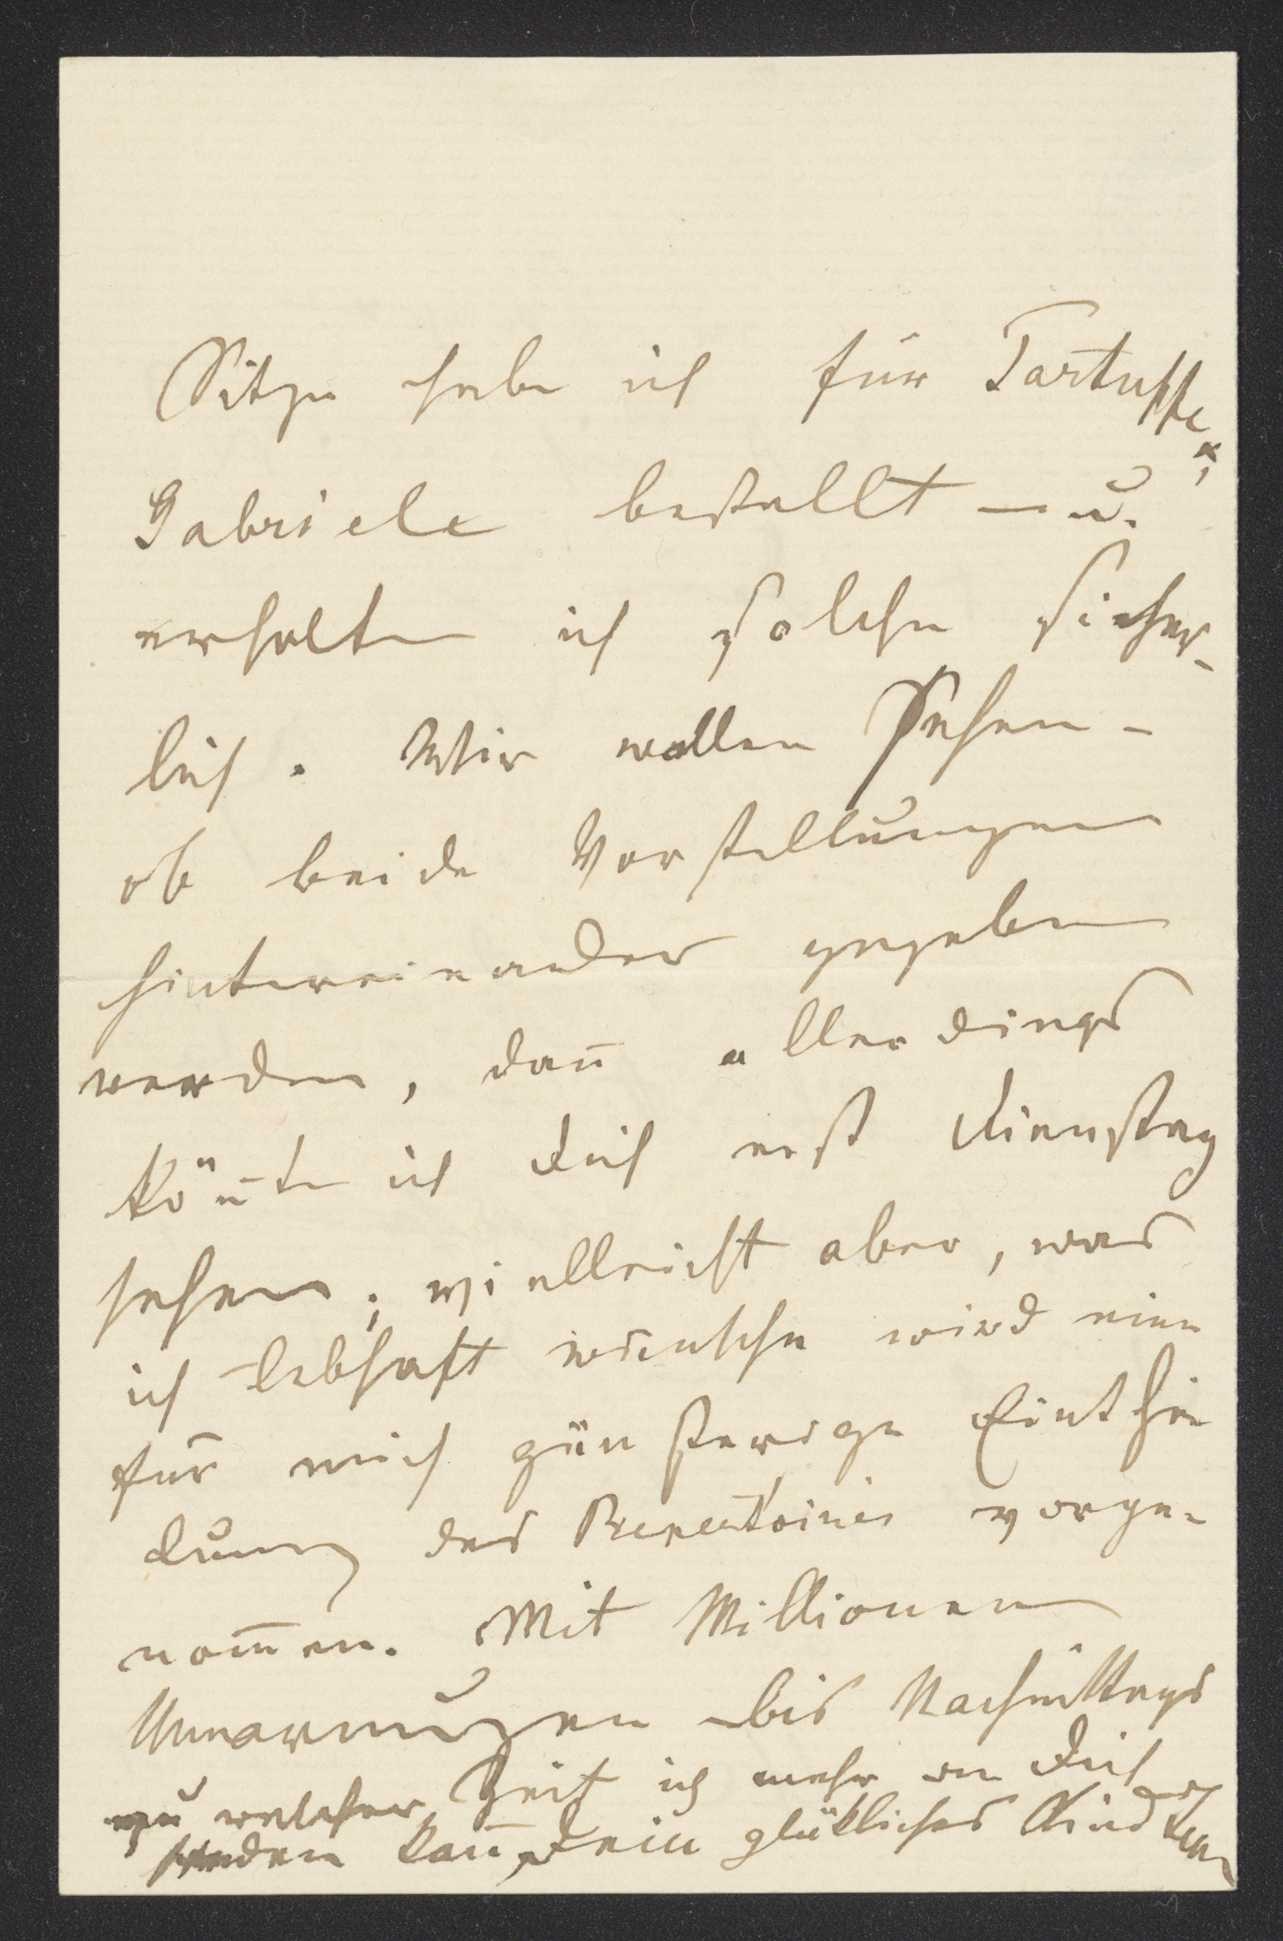 Sitze habe ich für Tartuffe,
Gabriele bestellt – u.
erhalte ich solche sicher-
lich. Wir wollen sehen –
ob beide Vorstellungen
hintereinander gegeben
werden, dañ allerdings
köñte ich Dich erst Dienstag
sehen; vielleicht aber, was
ich lebhaft wünsche wird eine
für mich günstige Einthei
lung des Repertoires vorge-
nom̄en. Mit Millionen
Umarmungen bis Nachmittags
zu welcher Zeit ich mehr an Dich
senden kañ, Dein glückliches Kind